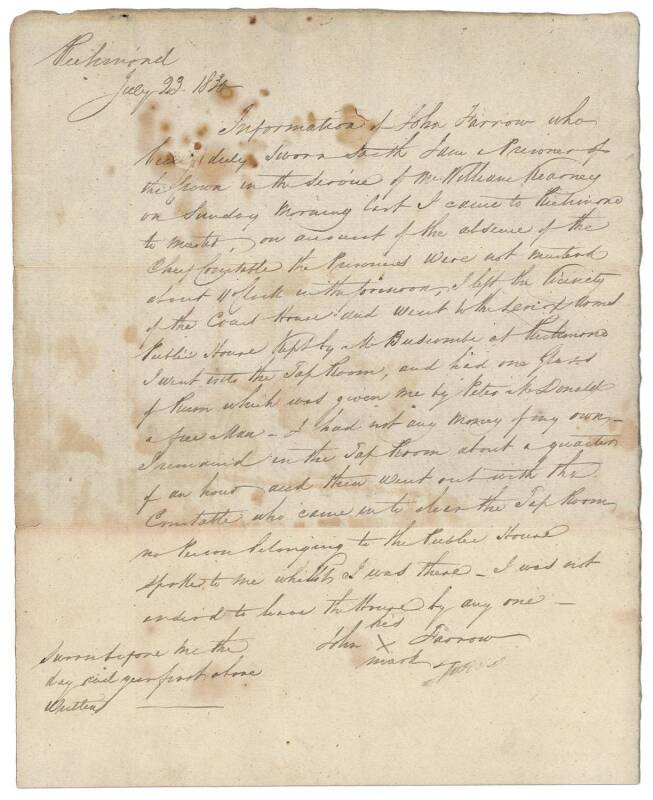 Richmond
July 23 1830
Information of John Farrow who
being duly sworn saith I am a Prisoner of
the Crown in the service of Mr William Kearney
on Sunday Morning last I came to Richmond
to muster, on account of the absence of the
Chief Constable the Prisoners were not mustered
about 11 oClock in the forenoon, I left the vicinity
of the Court House and went to the Arms
Public House kept by a Mr Buscombe at Richmond
I went into the Tap Room, and had one Glass
of Rum which was given me by Peter McDonald
a free Man – I had not any money of my own –
I remained in the Tap Room about a quarter
of an hour and then went out with the
Constable who came in to clear the Tap Room
no Person belonging to the Public House
spoke to me whilst I was there – I was not
ordered to leave the House by any one –
his
John X Farrow
mark
Sworn before me the
day and year first above
Written